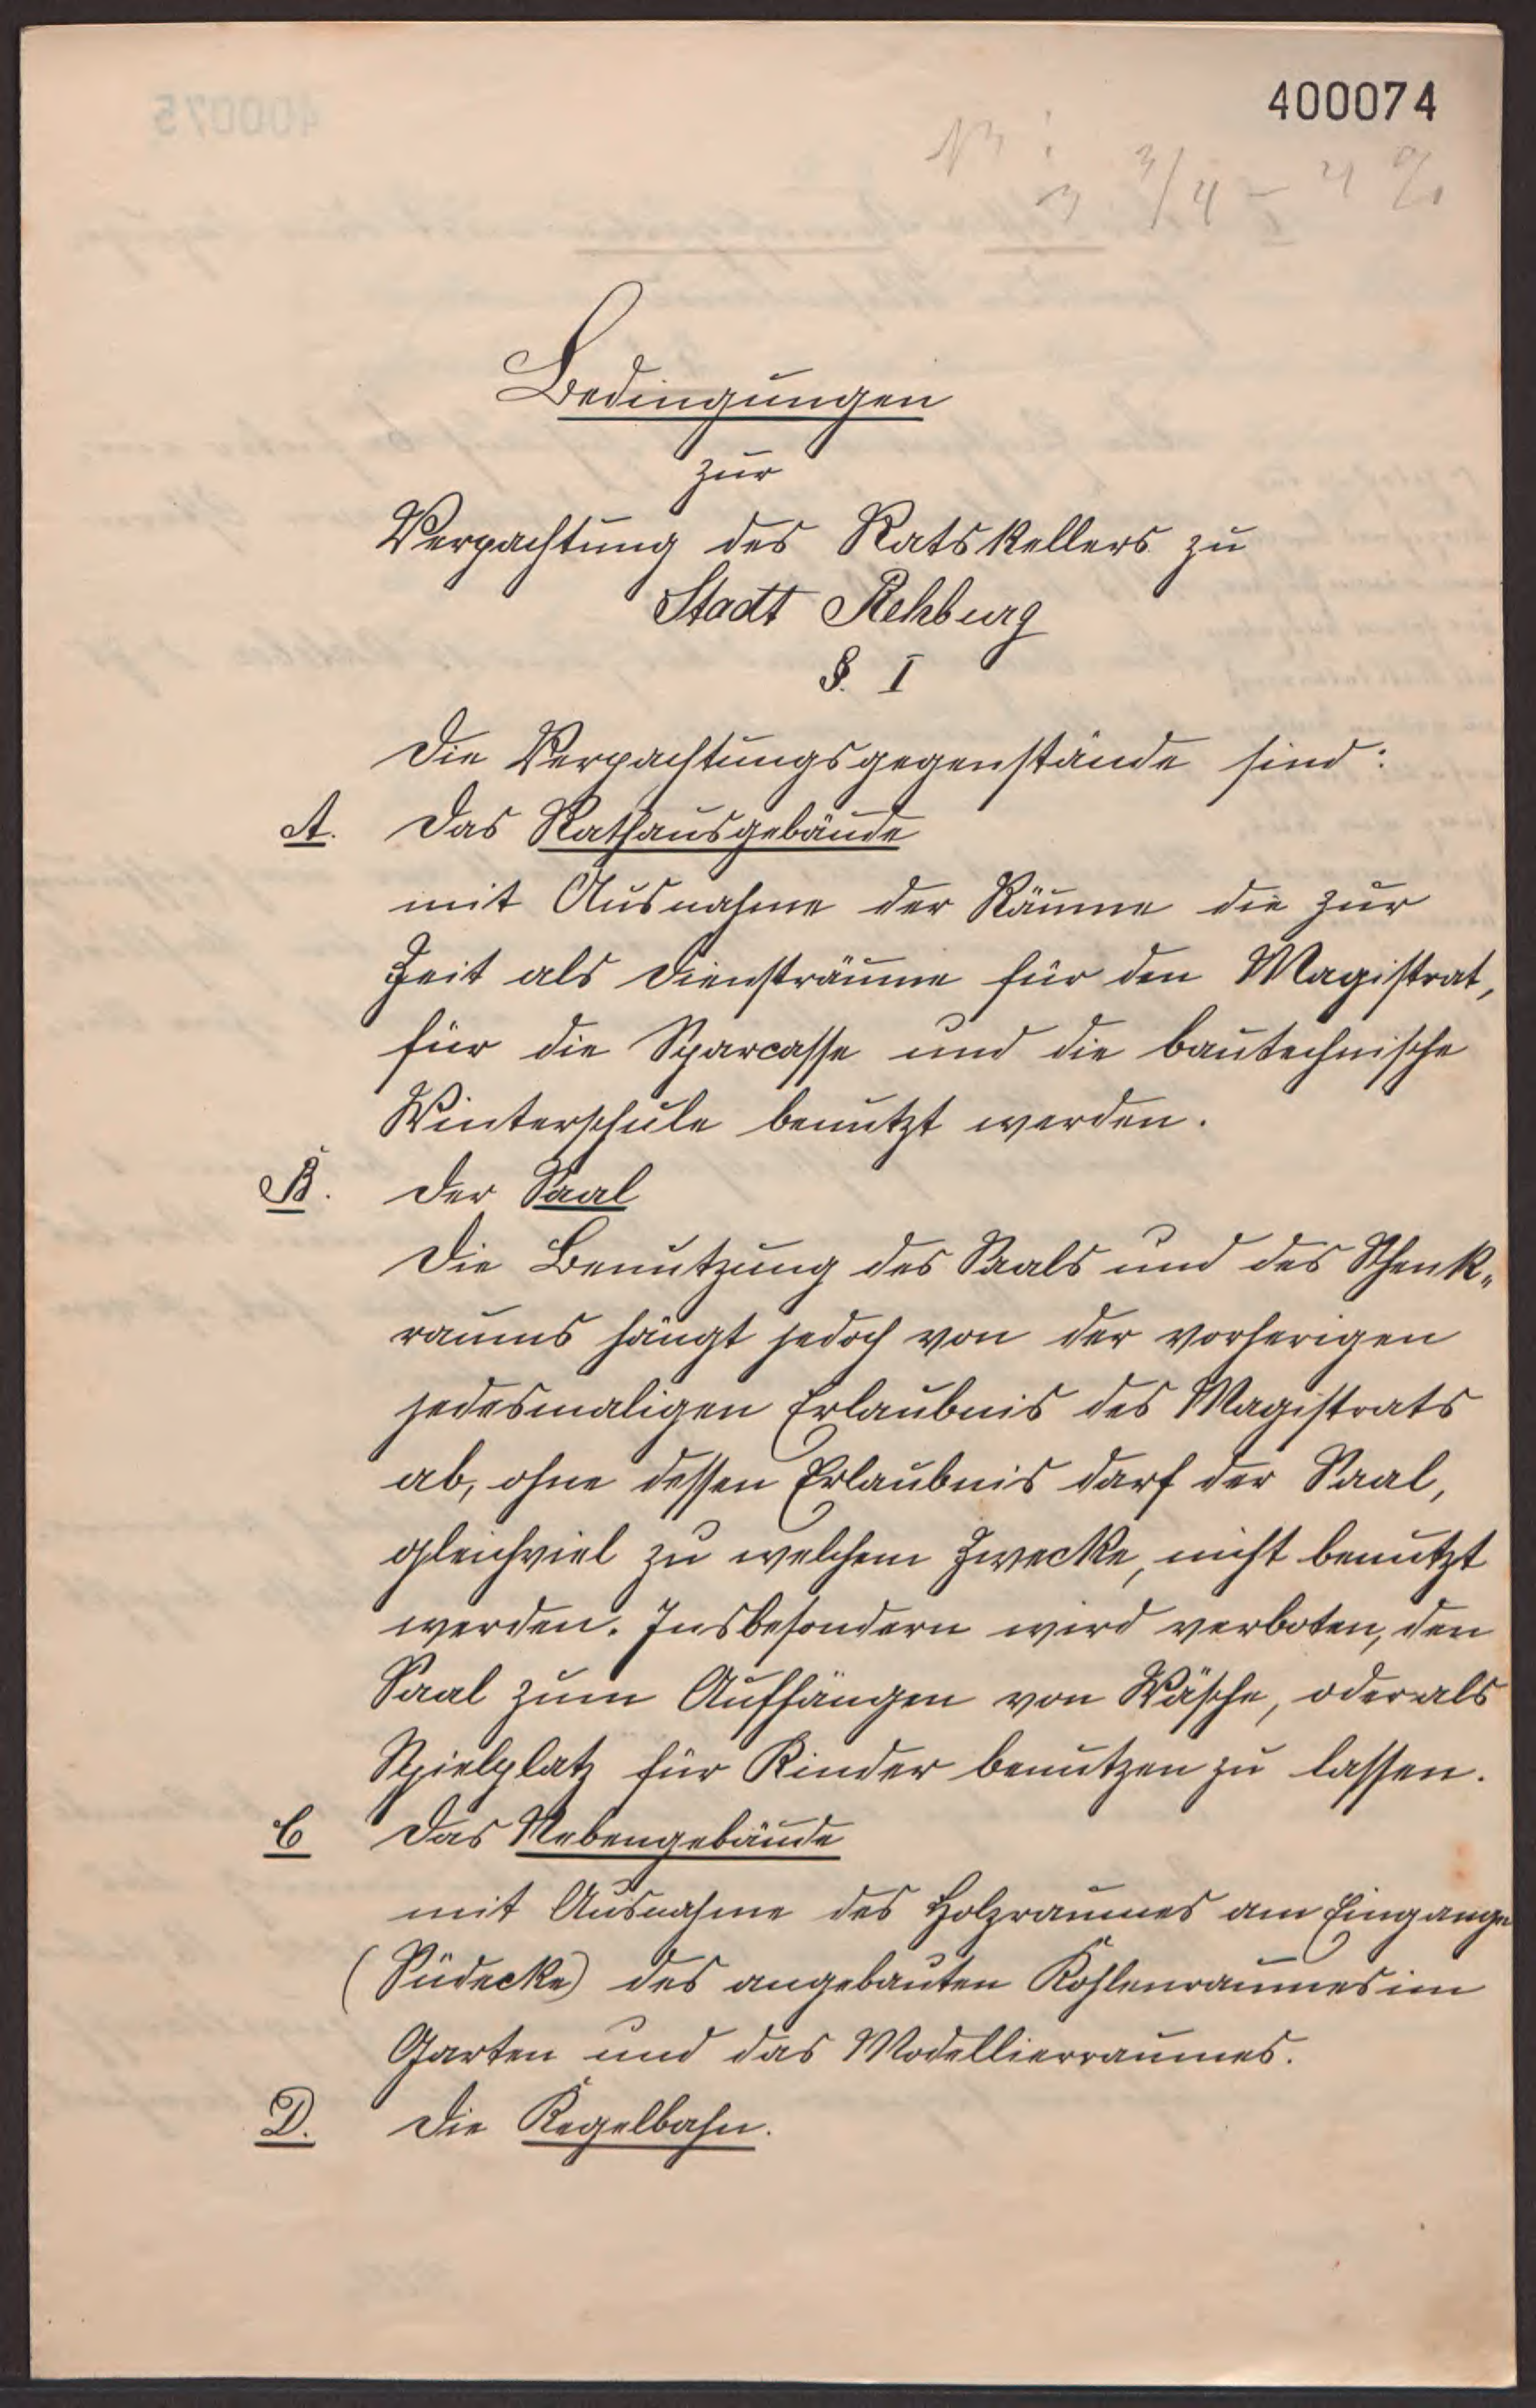 400074
3 3/4 - 4 %
Bedingungen
zur
Verpachtung des Ratskellers zu
Stadt Rehburg
§. I
Die Verpachtungsgegenstände sind:
A. Das Rathausgebäude
mit Ausnahme der Räume die zur
Zeit als Diensträume für den Magistrat,
für die Sparcasse und die bautechnische
Winterschule benutzt werden.
B. Der Saal
Die Benutzung des Saals und des Schenk-
raums hängt jedoch von der vorherigen
jedesmaligen Erlaubnis des Magistrats
ab, ohne dessen Erlaubnis darf der Saal,
gleichviel zu welchem Zwecke, nicht benutzt
werden. Insbesondern wird verboten, den
Saal zum Aufhängen von Wäsche, oder als
Spielplatz für Kinder benutzen zu lassen.
C Das Nebengebäude
mit Ausnahme des Holzraumes am Eingange
(Südecke) des angebauten Kohlenraumes im
Garten und das Modellierraumes.
D. Die Kegelbahn.